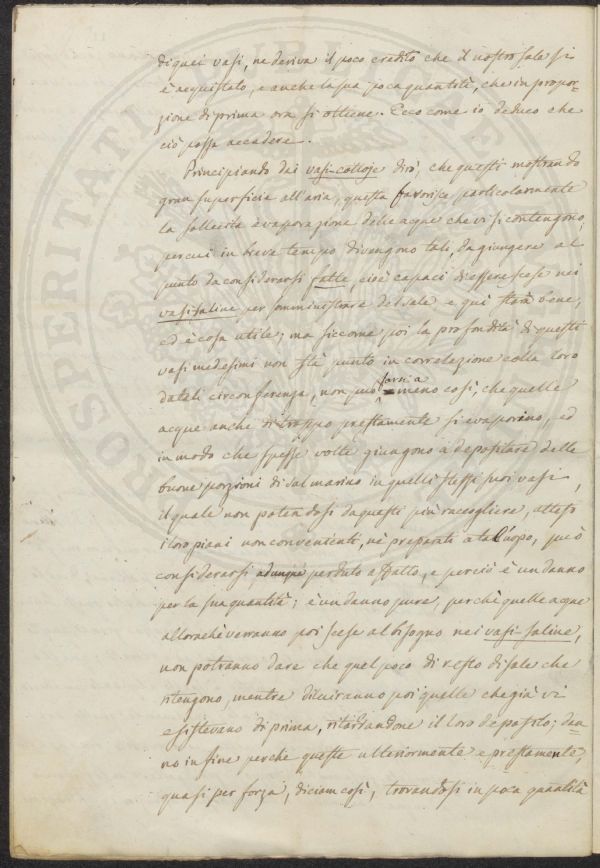 di quei vasi, ne deriva il poco credito che il nostro sale si
è acquistato, e anche la sua poca quantità, che in propor=
zione di prima ora si ottiene. Ecco come io deduco che
ciò possa accadere.
Principiando dai vasi-cottoje dirò, che questi mostrando
gran superficie all'aria, questa favorisce particolarmente
la sollecita evaporazione delle acque che vi si contengono,
percui in breve tempo divengono tali, da giungere al
punto da considerarsi fatte, cioè capaci di essere scese nei
vasi saline per somministrare del sale e qui sta bene,
ed è cosa utile; ma siccome poi la profondità di questi
vasi medesimi non stà punto in correlazione colla loro
data li circonferenza, non può farsi a meno così, che quelle
acque anche di troppo prestamente si evaporino, ed
in modo che spesse volte giungono a depositare delle
buone porzioni di sal marino in quelli stessi suoi vasi,
il quale non potendosi da questi più raccogliere, attesi
i loro piani non convenienti, nè preparati a tal'uopo, può
considerarsi adunque perduto affatto, e perciò è un danno
per la sua quantità; è un danno pure, perchè quelle acque
allorachè verranno poi scese al bisogno nei vasi-saline,
non potranno dare che quel poco di resto di sale che
ritengono, mentre diluiranno poi quelle che già vi
esistevano di prima, ritardandone il loro deposito; dan=
no in fine perchè queste ulteriormente e prestamente,
quasi per forza, diciam così, trovandosi in poca quantità
PROSPERITATI PUBLICAE